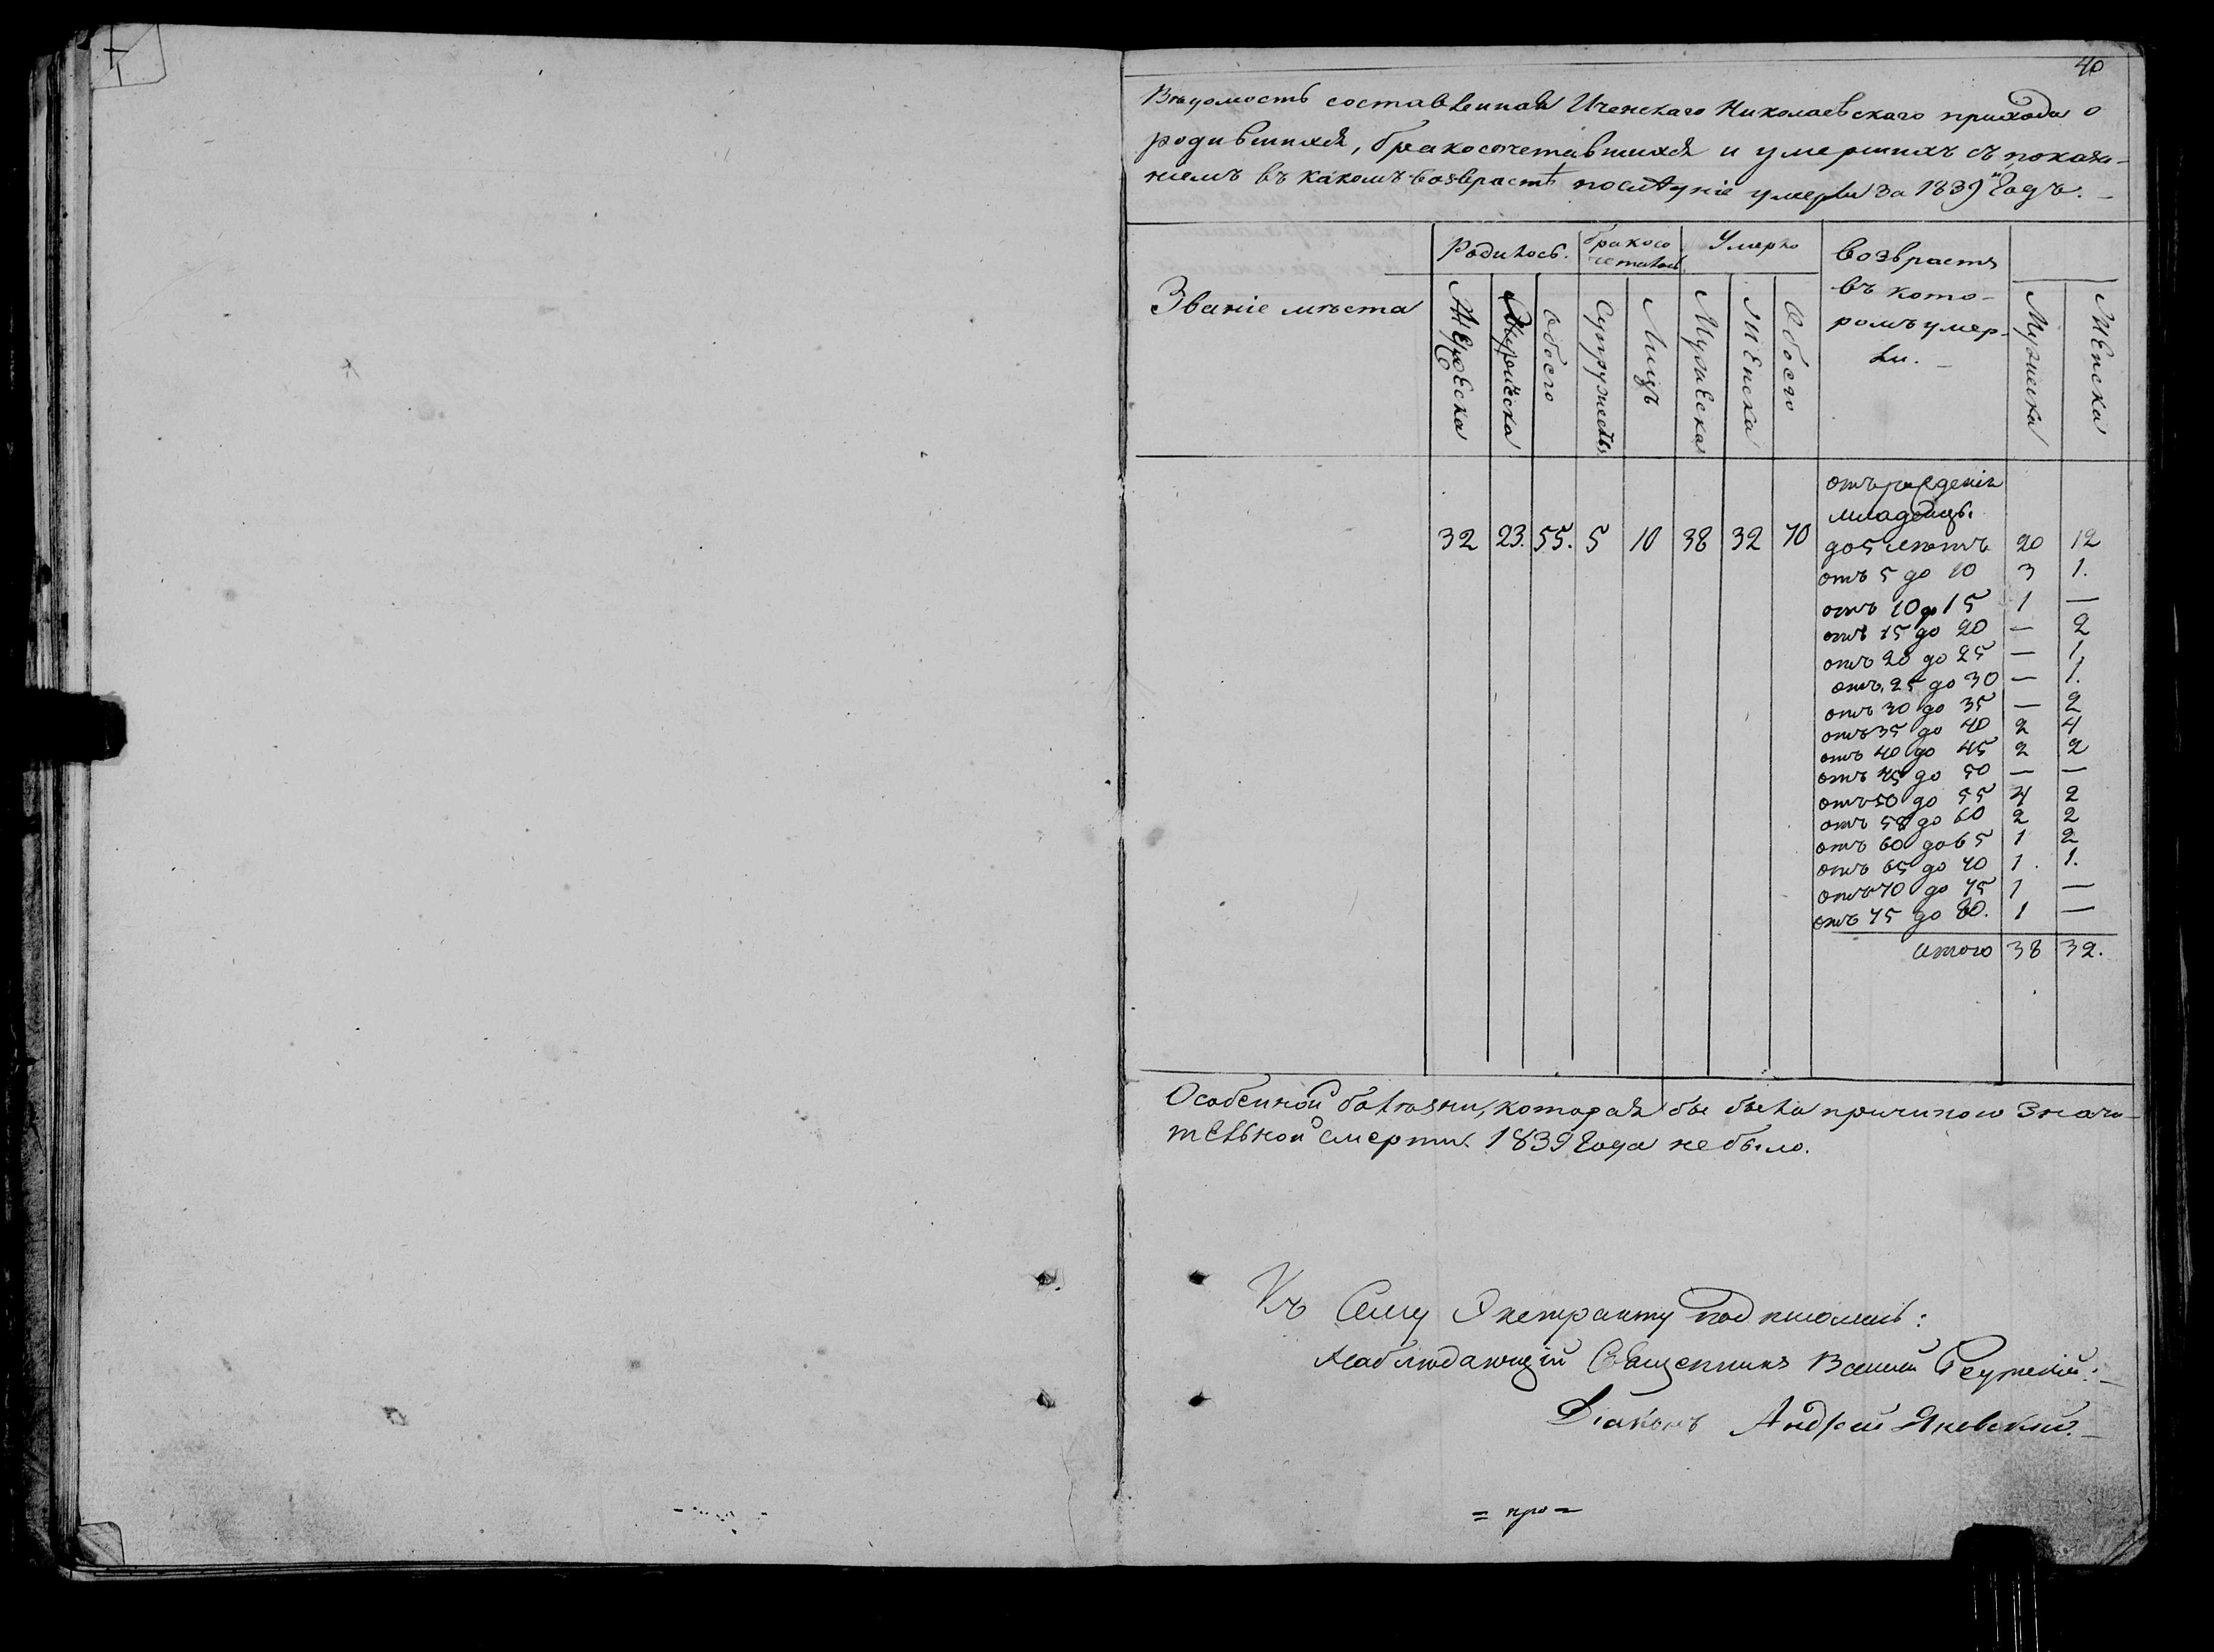 40
Вѣдомость составленная Иченскаго Николаевскаго прихода о
родившихся, бракосочетавшихся и умершихъ съ показа-
ніемъ въ какомъ возврастѣ послѣдніе умерли за 1839й Годъ. —
Званіе мѣста
Родилось.
бракосо
четалось
Умерло
возврастъ
въ кото-
ромъ умер-
ли. —
Обоего
Супружествъ
Лицъ
Мужеска
Женска
Обоего
Мужеска
Женска
отъ рожденія
младенцъ.
32 23. 55. 5 10 38 32 70 до 5 лѣтъ 20 12
отъ 5 до 10 3 1.
отъ 10 до 15 1 —
отъ 15 до 20 — 2
отъ 20 до 25 — 1
отъ 25 до 30 — 1.
отъ 30 до 35 — 2
отъ 35 до 40 2 4
отъ 40 до 45 2 2
отъ 45 до 50 — —
отъ 50 до 55 4 2
отъ 55 до 60 2 2
отъ 60 до 65 1 2
отъ 65 до 70 1. 1.
отъ 70 до 75 1 —
отъ 75 до 80. 1 —
итого 38 32.
Особенной болѣзни, которая бы была причиною значи-
тельной смерти 1839 Года не было.
Къ Сему Экстракту подписались:
Наблюдающій Священникъ
Діаконъ Андрей Яневскій. —